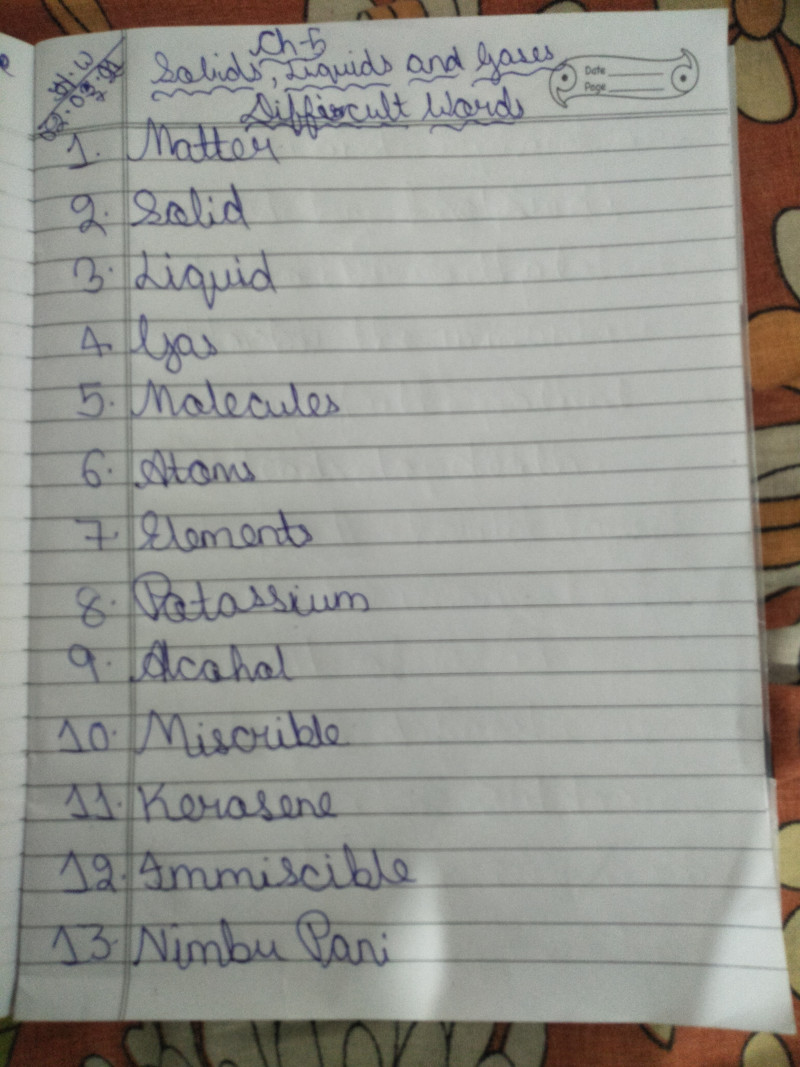 Ch-5
Solids, Liquids and Gases
Date
Page
Difficult Words
1. Matter
2. Solid
3. Liquid
4. Gas
5. Molecules
6. Atoms
7. Elements
8. Potassium
9. Alcahol
10. Miscrible
11. Kerosene
12. Immiscible
13. Nimbu Pani